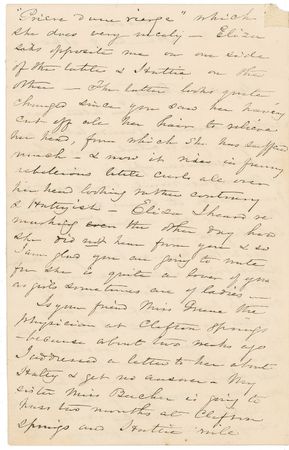 "Priere d'une vierge" which
she does very nicely — Eliza
sits opposite me on one side
of the table & Hattie on the
other — The latter looks quite
changed since you saw her having
cut off all her hair to relieve
her head, from which she has suffered
much — & now it rises in funny
rebellious little curls all over
her head looking rather contrary
& Hattyish — Eliza I heard re
marking the other day how
she did not hear from you & so
I am glad you are going to write
for she is quite a lover of you
as girls sometimes are of ladies —
Is your friend Miss Greene the
physician at Clifton Springs
— because about two weeks ago
I addressed a letter to her about
Hatty & got no answer — My
sister Miss Beecher is going to
pass two months at Clifton
Springs and Hattie will